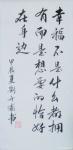 幸福不是什么都拥
有而是想要的恰好
在身边
甲辰夏刘
书